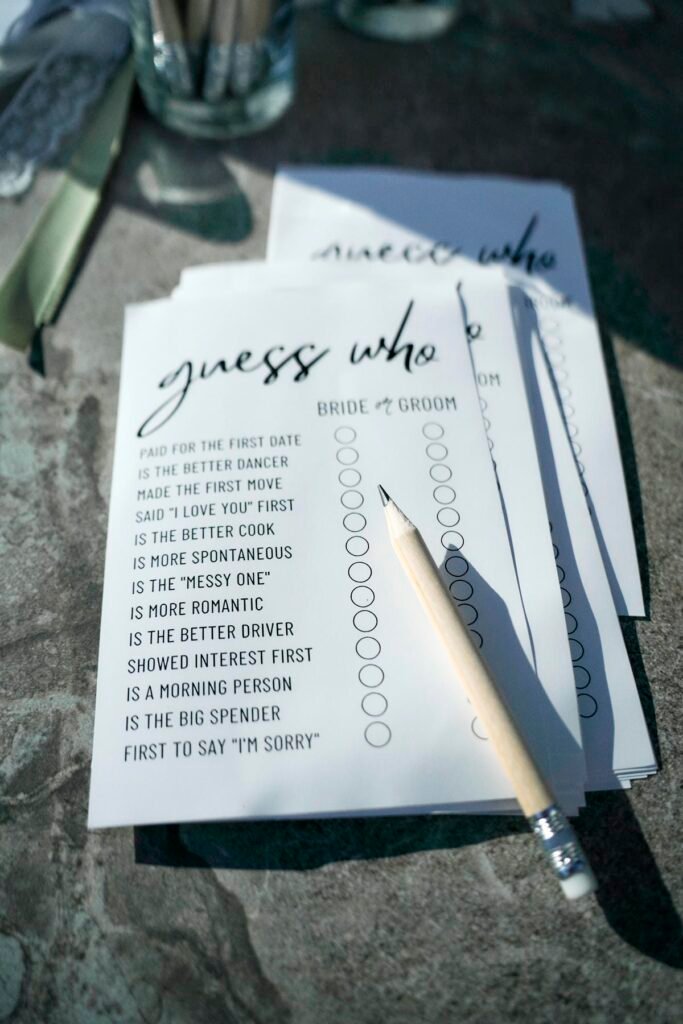 guess who
guess who
BRIDE or GROOM
PAID FOR THE FIRST DATE
IS THE BETTER DANCER
MADE THE FIRST MOVE
SAID "I LOVE YOU" FIRST
IS THE BETTER COOK
IS MORE SPONTANEOUS
IS THE "MESSY ONE"
IS MORE ROMANTIC
IS THE BETTER DRIVER
SHOWED INTEREST FIRST
IS A MORNING PERSON
IS THE BIG SPENDER
FIRST TO SAY "I'M SORRY"